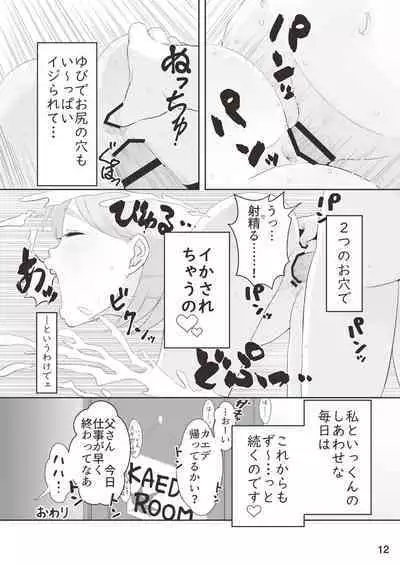 パンッ
パンッ
ねっちゅ
ゆびでお尻の穴も
い〜っぱい
イジられて…
2つのお穴で
うっ…
射精る……!
パンッ
パンッ
びゅる…
ビクンッ
イかされ
ちゃうの♡
あぁっ
…というわけでェ
私といっくんの
しあわせな
毎日は
これからも
ず〜…っと
続くのです♡
…おーい
カエデ
帰ってるかい?
トン
トン
父さん 今日
仕事が早く
終わってなあ
ハハ…
KAED
ROOM
おわり
12